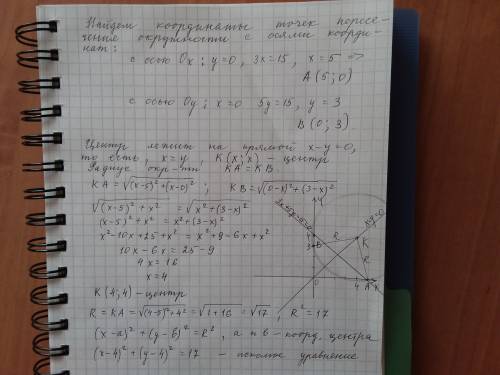 Найдем координаты точек пересе-
чения окружности с осями коорди-
нат:
с осью Ox: y=0, 3x=15, x=5 =>
A(5;0)
с осью Oy: x=0 5y=15, y=3
B(0;3)
Центр лежит на прямой x-y=0,
то есть, x=y, K(x;x) - центр
Радиус окр-ти KA=KB.
KA=√((x-5)²+(x-0)²; KB=√((0-x)²+(3-x)²
√((x-5)²+x² = √(x²+(3-x)²
(x-5)²+x² = x²+(3-x)²
x²-10x+25+x² = x²+9-6x+x²
10x-6x=25-9
4x=16
x=4
K(4;4)-центр
R=KA=√((4-5)²+4² = √(1+16 = √17, R²=17
(x-a)²+(y-b)²=R², a и b - коорд. центра
(x-4)²+(y-4)²=17 - искомое уравнение
y
x-y=0
4
3
B
R
K
R
0
4
A
x